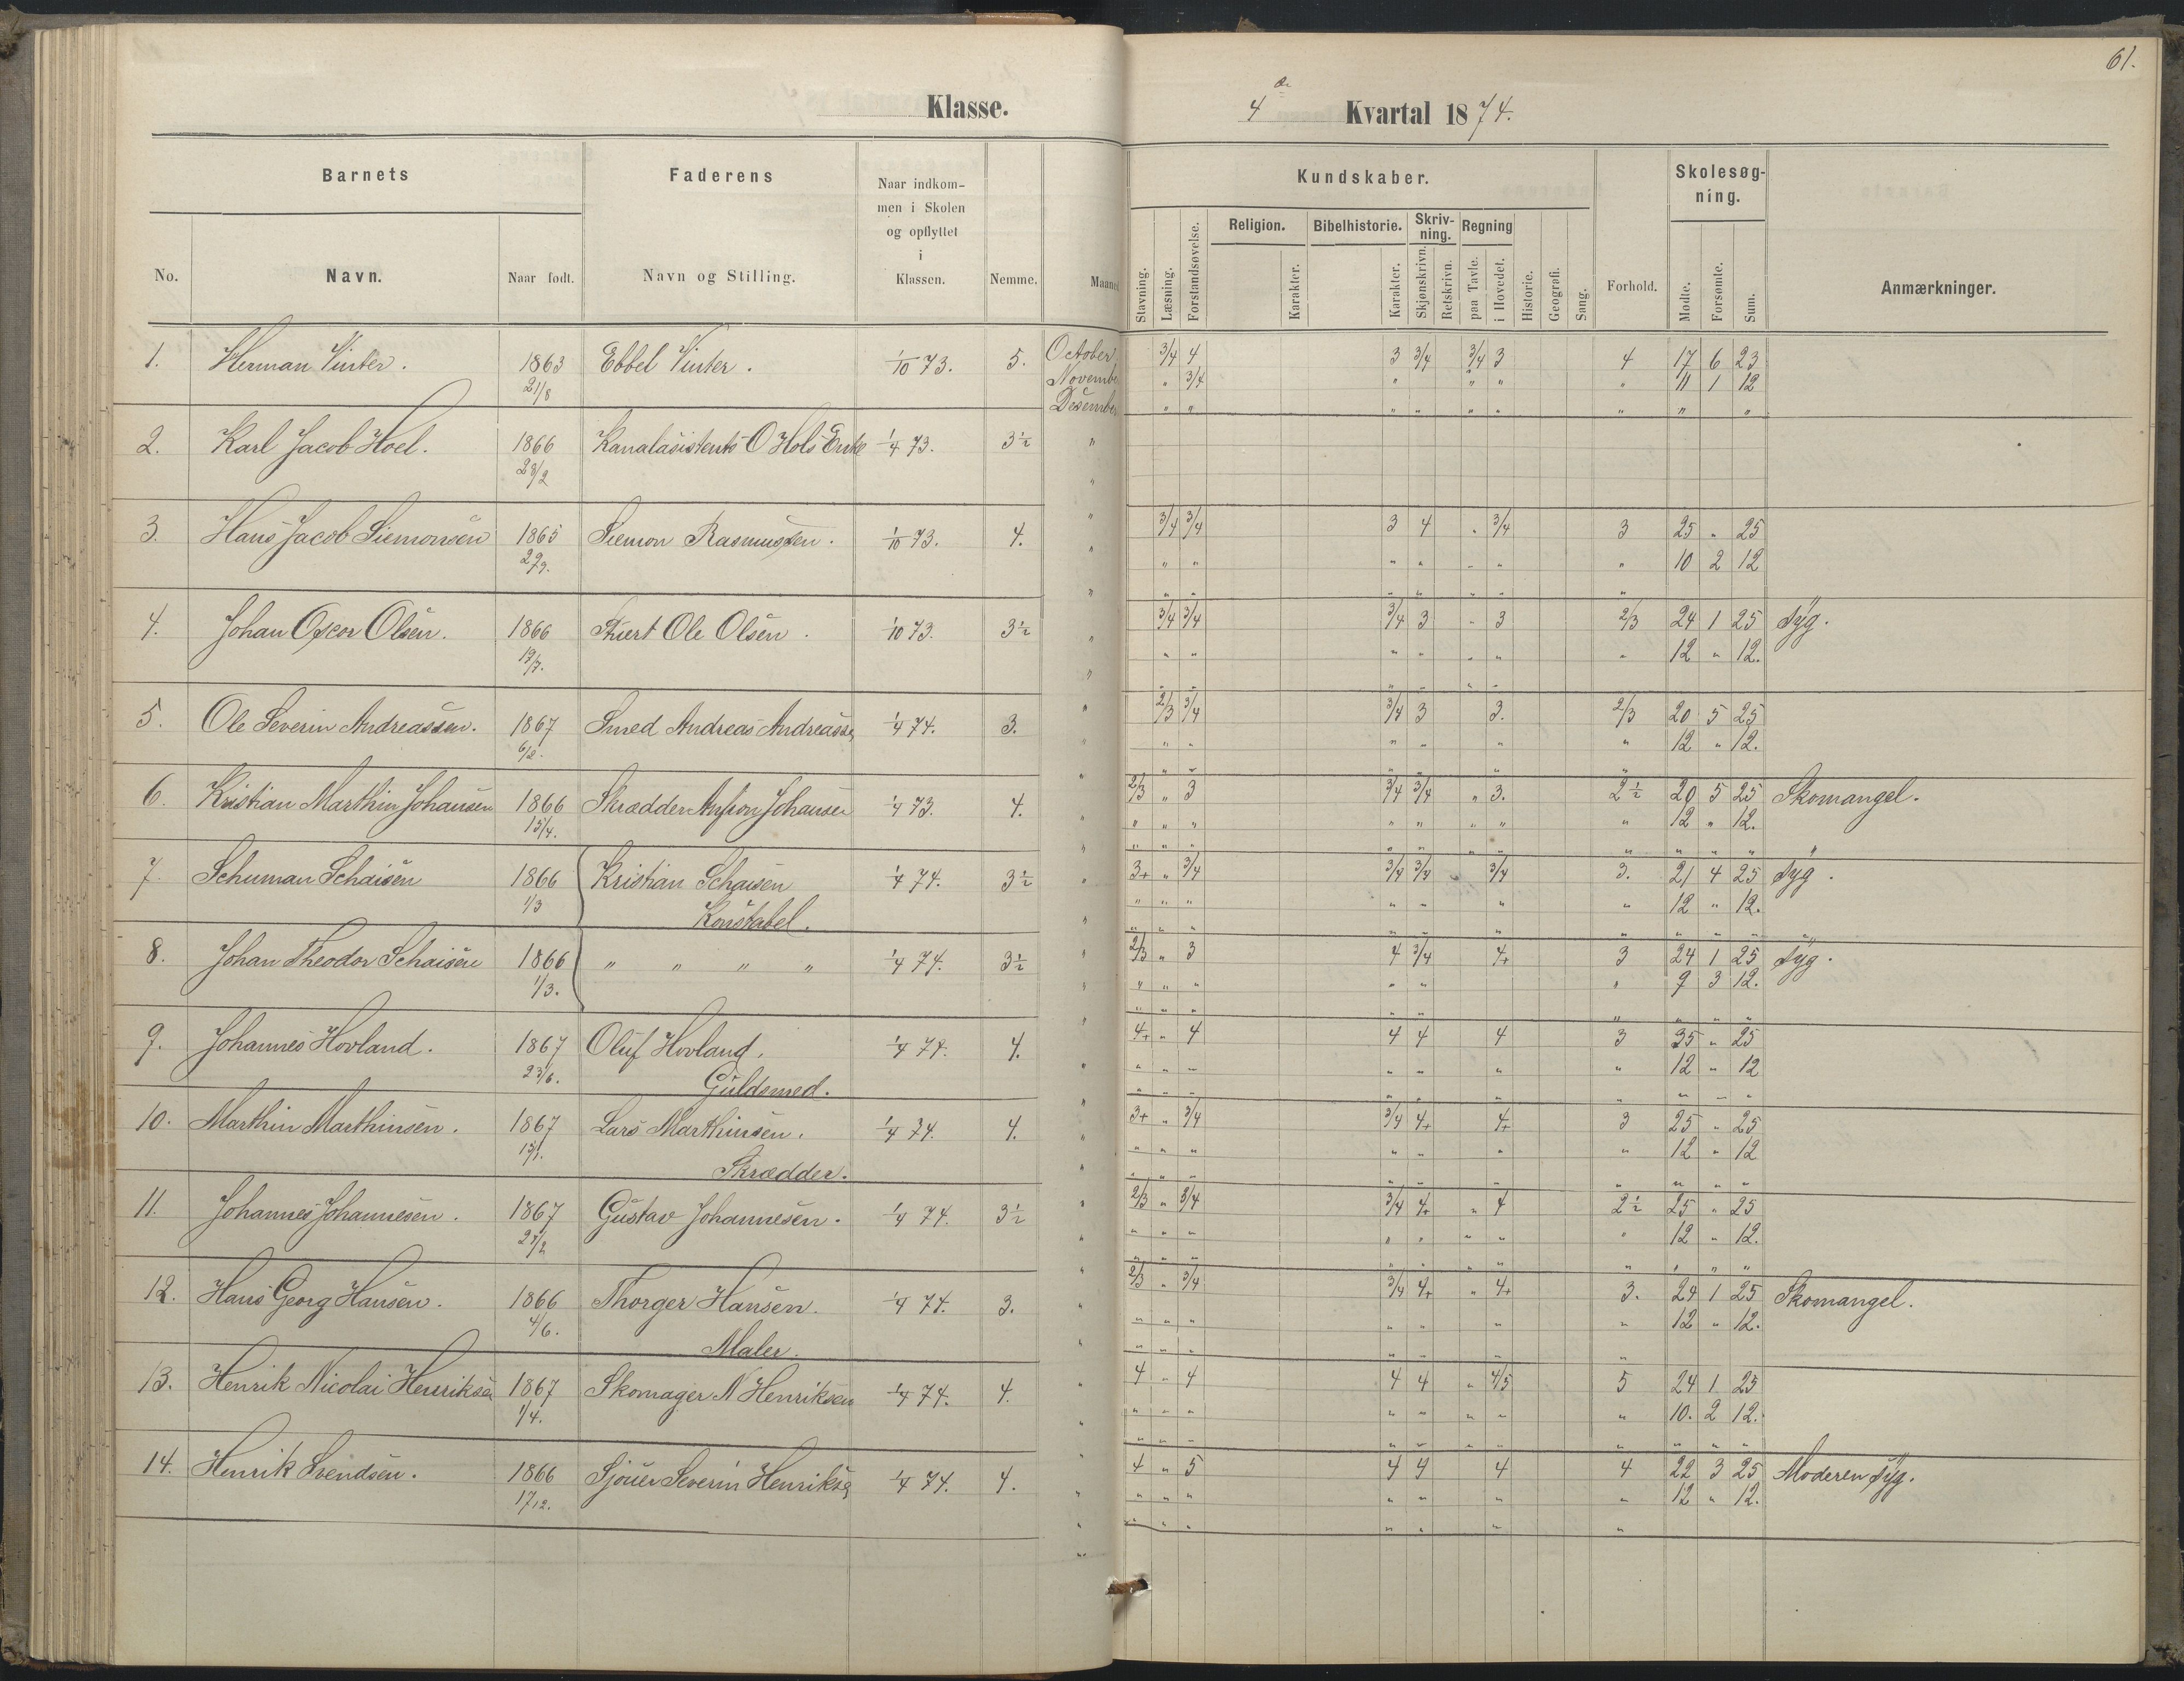 61.
Klasse.
4de Kvartal 1874.
Barnets
Faderens
Naar indkom-
men i Skolen
og opflyttet
i
Klassen.
Nemme.
Maaned
No.
Navn.
Naar født.
Navn og Stilling.
Kundskaber.
Skolesøg-
ning.
Stavning.
Læsning.
Forstandsøvelse.
Religion.
Karakter.
Bibelhistorie.
Karakter.
Skriv-
ning.
Skjønskrivn.
Retskrivn.
Regning
paa Tavle.
i Hovedet.
Historie.
Geografi.
Sang.
Forhold.
Mødte.
Forsømte.
Sum.
Anmærkninger.
1. Herman Vinter. 1863 Ebbel Vinter. 1/10 73. 5. October 3/4 4 3 3/4 3/4 3 4 17 6 23
21/8 November " 3/4 " " " " 11 1 12
Desember " " " " " " " " "
2. Karl Jacob Hoel. 1866 Kanalasistents O Hols Enke 1/4 73. 3½ "
28/2 "
3. Hans Jacob Siemonsen 1865 Siemon Rasmussen. 1/10 73. 4. " 3/4 3/4 3 4 " 3/4 3 25 " 25
" " " " " " " 10 2 12
4. Johan Oscar Olsen. 1866 Stuert Ole Olsen. 1/10 73. 3½ 3/4 3/4 3/4 3 " 3 2/3 24 1 25 Syg.
" " " " " " " 12 " 12.
5. Ole Severin Andreassen. 1867 Smed Andreas Andreasse 1/4 74. 3. 2/3 3/4 3/4 3 3. 2/3 20 5 25
6/12. " " " " " " 12 " 12.
6. Kristian Marthin Johansen 1866 Skrædder Johansen 1/4 73. 4. 2/3 " 3 3/4 3/4 " 3. 2½ 20 5 25 Skomangel.
15/4. " " " " " " " " 12 " 12.
7. Schuman Schaisen 1866 Kristian Schaisen 1/4 74. 3½ 3+ " 3/4 3/4 3/4 3/4 3. 21 4 25 Syg.
1/3 Konstabel. " " " " " " " 12 " 12.
8. Johan Theodor Schaisen 1866 " " " " 1/4 74. 3½ 2/3 " 3 4 3/4 4+ 3 24 1 25 Syg.
1/3. " " " " " " 9 3 12.
9. Johannes Hovland. 1867 Oluf Hovland. 1/4 74. 4. 4+ " 4 4 4 4 3 25 " 25
23/6. Guldsmed. " " " " " " " 12 " 12
10. Marthin Marthinsen. 1867 Lars Marthinsen. 1/4 74. 4. 3+ " 3/4 3/4 4+ 4+ 3 25 " 25
Skrædder. " " " " " " " 12 " 12
11. Johannes Johannesen. 1867 Gustav Johannesen. 1/4 74. 3½ 2/3 " 3/4 3/4 4+ " 4 2½ 25 " 25
" " " " " " " " 12 " 12.
12. Hans Georg Hansen. 1866 Thorger Hansen. 1/4 74. 3. 2/3 " 3/4 3/4 4+ " 4+ 3. 24 1 25 Skomangel.
4/6. Maler. " " " " " " " 12 " 12.
13. Henrik Nicolai Henrikse 1867 Skomager N Henriksen 1/4 74. 4. 4 " 4 4 4 " 4/5 5 24 1 25
1/4. " " " " " " " " 10. 2 12.
14. Henrik Svendsen. 1866 Sjouer Severin Henrikse 1/4 74. 4. 4 " 5 4 4 4 4 22 3 25 Moderen syg.
17/12. " " " " " " " 12 " 12.